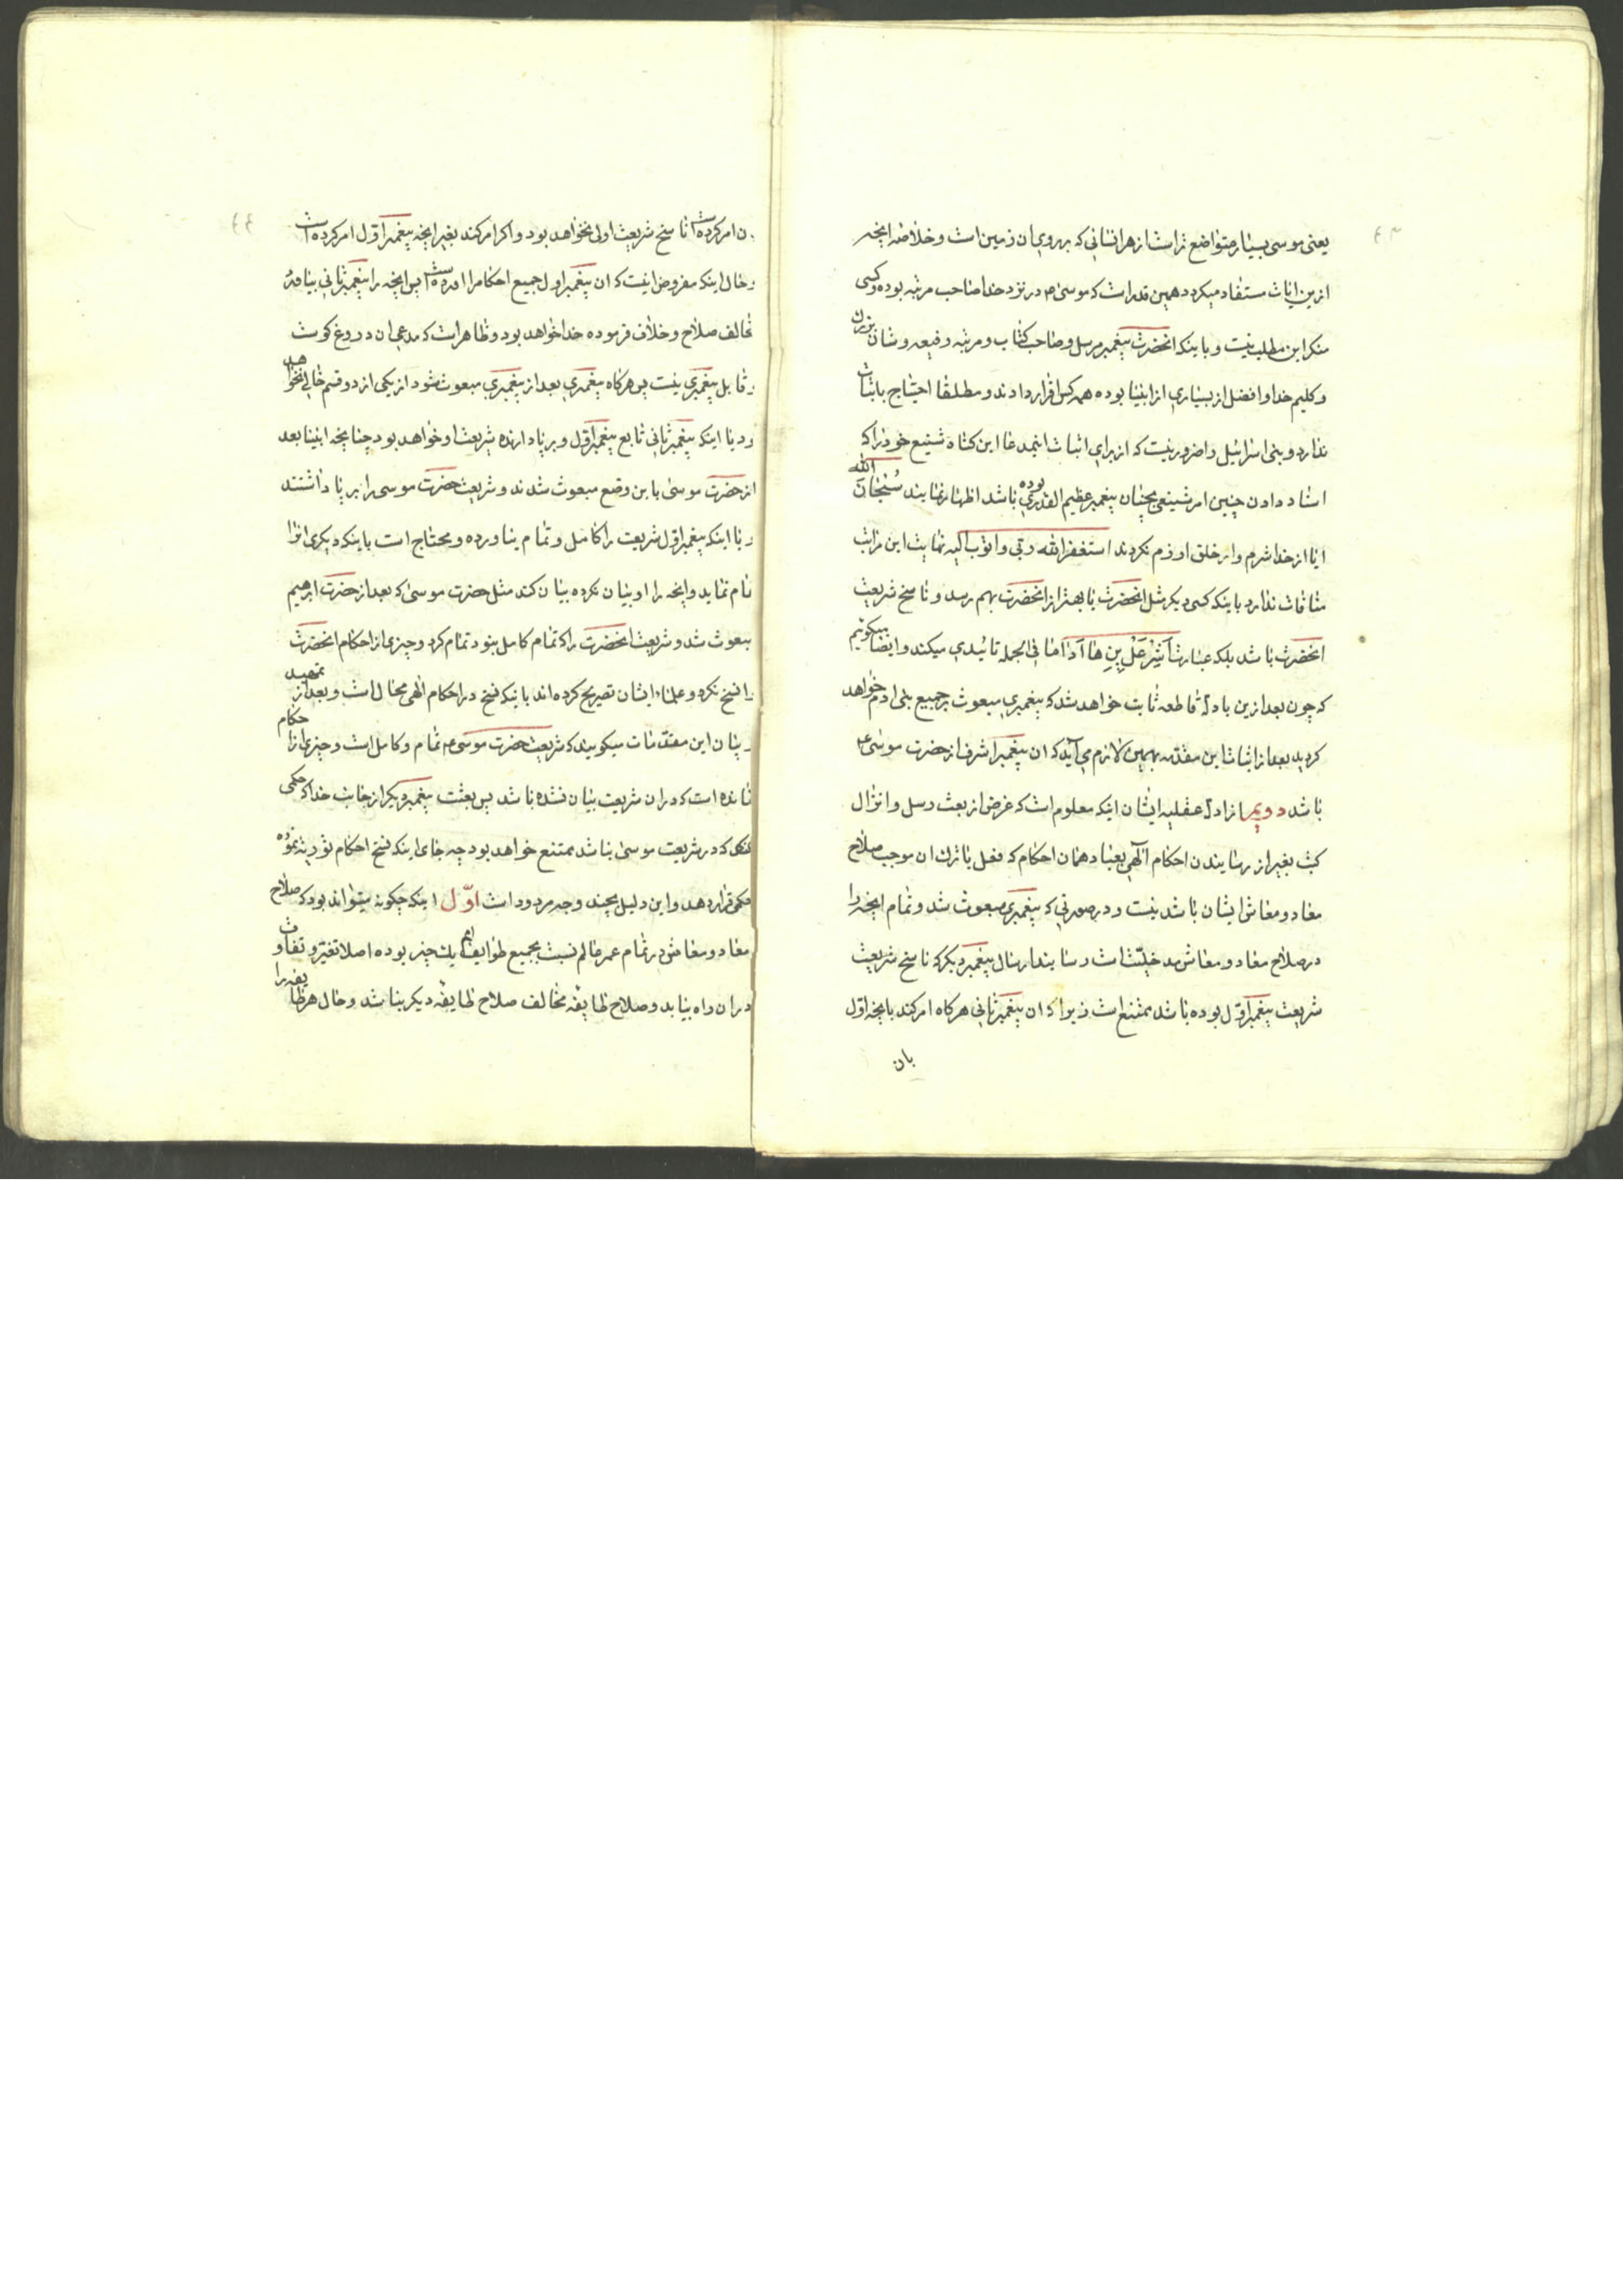 ۴۳
یعنی موسی بسیار متواضع تر است از هر انسانی که بر روی ان زمین است و خلاصه انچه
ازین ایات مستفاد میکردد همین قدر است که موسی م در نزد خدا صاحب مرتبه بوده و کسی
منکر این مطلب نیست و باینکه انحضرت پیغمبر مرسل و صاحب کتاب و مرتبه رفیعه و شان بزرك
و کلیم خدا و افضل از بسیاری از انبیا بوده همه کس اقرار دادند و مطلقا احتیاج باثبات
ندارد و بنی اسرائیل را ضرور نیست که از برای اثبات اینمدعا این کناه شنیع خود را که
اسناد دادن چنین امر شنیعی بچنان پیغمبر عظیم القدری بوده باشد اظهار نمایند سُبحان الله
ایا از خدا شرم و از خلق ازرم نکردند استغفر الله ربی و اتوب الیه نهایت این مراتب
منافات ندارد باینکه کسی دیکر مثل انحضرت یا بهتر از انحضرت بهم رسد و ناسخ شریعت
انحضرت باشد بلکه عبارت اَشِرْ عَلْ پِنِ ها اَدٰاما فی الجمله تائیدی میکند و ایضا میکوئیم
که چون بعد ازین بادلّهٔ قاطعه ثابت خواهد شد که پیغمبری مبعوث بر جمیع بنی ادم خواهد
کردید بعد از اثبات این مقدمه بهمین لازم می آید که ان پیغمبر اشرف از حضرت موسی ع
باشد دویم از ادلّهٔ عقلیه ایشان اینکه معلوم است که غرض از بعث رسل و انزال
کتب بغیر از رسانیدن احکام آلهی بعباد همان احکام که فعل یا ترك ان موجب صلاح
معاد و معاش ایشان باشد نیست و در صورتی که پیغمبری مبعوث شد و تمام انچه را
در صلاح معاد و معاش مدخلیّت است رسانید ارسال پیغمبر دیکر که ناسخ شریعت
شریعت پیغمبر اوّل بوده باشد ممتنع است زیرا که ان پیغمبر ثانی هرکاه امر کند بانچه اوّل
بان
۴۴
ن امر کرده است ناسخ شریعت اولی نخواهد بود و اکر امر کند بغیر انچه پیغمبر اوّل امر کرده است
و حال اینکه مفروض اینست که ان پیغمبر اول جمیع احکام را اورده است پس انچه را پیغمبر ثانی بیاورد
مخالف صلاح و خلاف فرموده خدا خواهد بود و ظاهر است که مدعی ان دروغ کوست
و قابل پیغمبری نیست پس هرکاه پیغمبری بعد از پیغمبری مبعوث شود از یکی از دو قسم خالی نخواهد
بود یا اینکه پیغمبر ثانی تابع پیغمبر اوّل و برپا دارنده شریعت او خواهد بود چنانچه انبیا بعد
از حضرت موسی باین وضع مبعوث شدند و شریعت حضرت موسی را برپا داشتند
و یا اینکه پیغمبر اوّل شریعت را کامل و تمام نیاورده و محتاج است باینکه دیکری انرا
تمام نماید و انچه را او بیان نکرده بیان کند مثل حضرت موسی که بعد از حضرت ابرهیم
مبعوث شد و شریعت انحضرت را که تمام کامل نبود تمام کرد و چیزی از احکام انحضرت
را نسخ نکرد و علماء ایشان تصریح کرده اند باینکه نسخ در احکام الهی محال است و بعد از تمهید
و بیان این مقدمات میکویند که شریعت حضرت موسی ع تمام و کامل است و چیزی از احکام
نمانده است که در ان شریعت بیان نشده باشد پس بعثت پیغمبر دیکر از جانب خدا که حکمی
کند که در شریعت موسی نباشد ممتنع خواهد بود چه جای اینکه نسخ احکام توریة نموده
حکمی قرار دهد و این دلیل بچند وجه مردود است اوّل اینکه چکونه میتواند بود که صلاح
معاد و معاش در تمام عمر عالم نسبت بجمیع طوایف امم یك چیز بوده اصلا تغیّر و تفاوت
در ان راه نیابد و صلاح طایفه مخالف صلاح طایفه دیکر نباشد و حال هر طایفه را